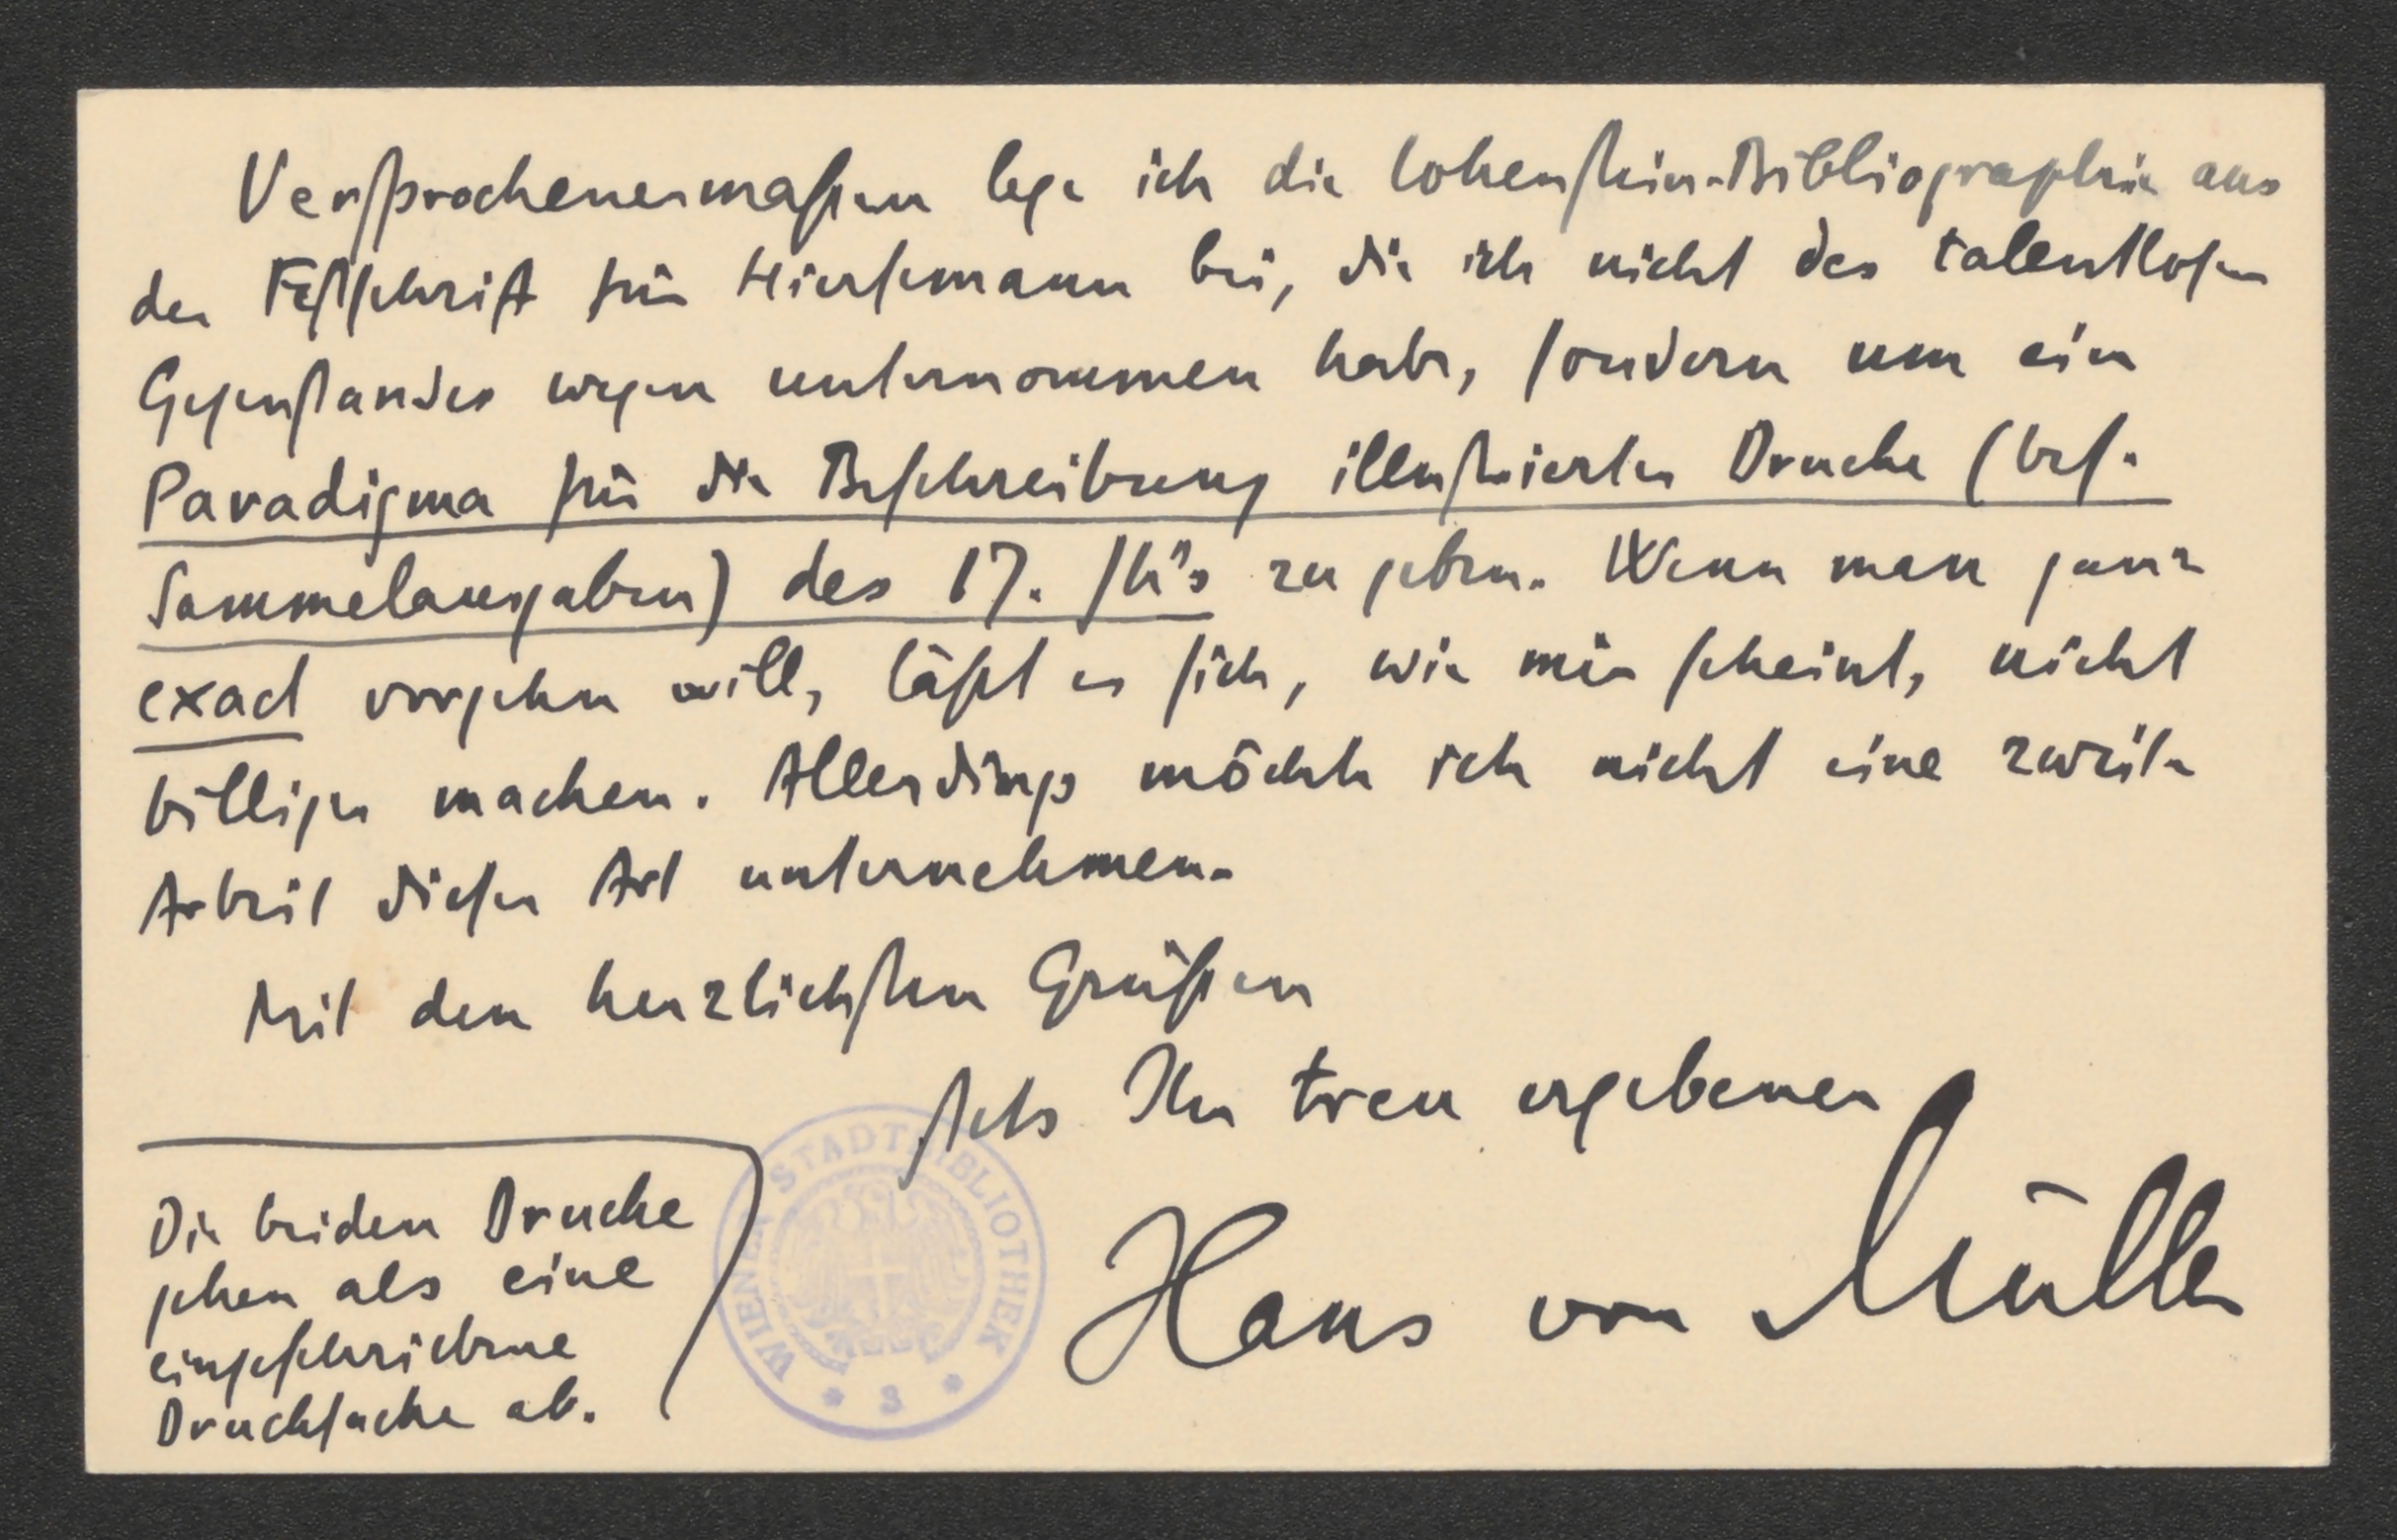 Versprochenermaßen lege ich die Lohenstein-Bibliographie aus
der Festschrift für Hiersemann bei, die ich nicht des talentlosen
Gegenstandes wegen unternommen habe, sondern um ein
Paradigma für die Beschreibung illustrierter Drucke (bes.
Sammelausgaben) des 17. Jh's zu geben. Wenn man ganz
exact vorgehn will, läßt es sich, wie mir scheint, nicht
billiger machen. Allerdings möchte ich nicht eine zweite
Arbeit dieser Art unternehmen.
Mit den herzlichsten Grüßen
stets Ihr treu ergebener
Hans von Müller
Die beiden Drucke
gehen als eine
eingeschriebene
Drucksache ab.
WIENER STADTBIBLIOTHEK
* 3 *